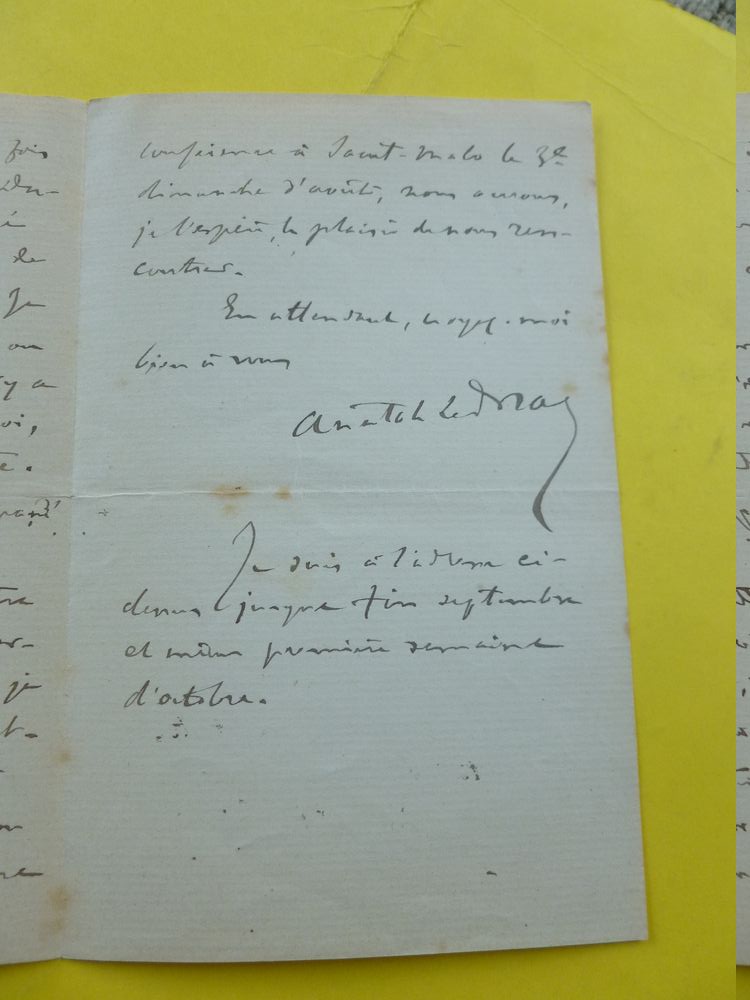 fois
i
de
Je
on
y a
oi,
e.
je
conférence à Saint-Malo le 3e
dimanche d'août, nous aurons,
je l'espère, le plaisir de nous ren-
contrer.
En attendant, croyez-moi
bien à vous
Anatole Le Braz
Je suis à l'adresse ci-
dessus jusque fin septembre
et même première semaine
d'octobre.